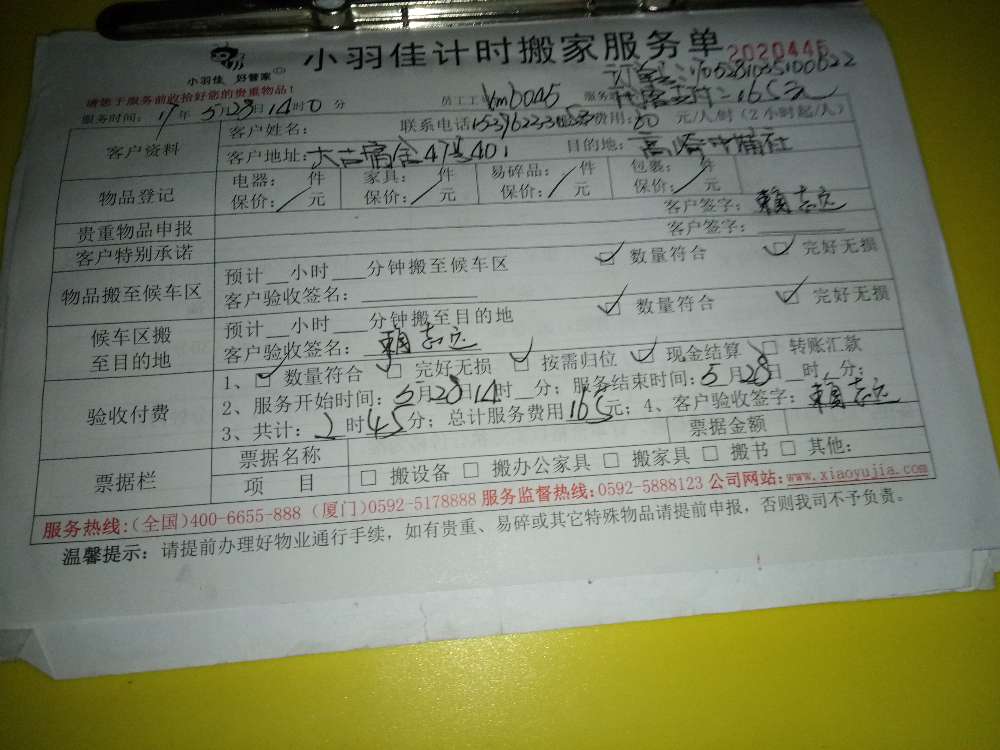 小羽佳计时搬家服务单 2020446
小羽佳 好管家
请您于服务前收拾好您的贵重物品!
服务时间: 17年5月28日14时0分 员工工 xm6045 165元
客户资料 客户姓名: 联系电话 费用: 60 元/人/时(2小时起/人)
客户地址: 47号401 目的地: 高崎
物品登记 电器: 件 家具: 件 易碎品: 件 包裹: 件
保价: 元 保价: 元 保价: 元 保价: 元
贵重物品申报 客户签字: 赖志远
客户特别承诺 客户签字:
物品搬至候车区 预计 小时 分钟搬至候车区 数量符合 完好无损
客户验收签名:
候车区搬至目的地 预计 小时 分钟搬至目的地 数量符合 完好无损
客户验收签名: 赖志远
验收付费 1、 数量符合 完好无损 按需归位 现金结算 转账汇款
2、服务开始时间: 5月28日14时 分; 服务结束时间: 5月28日 时 分;
3、共计: 2时45分; 总计服务费用165元; 4、客户验收签字: 赖志远
票据栏 票据名称 票据金额
项 目 搬设备 搬办公家具 搬家具 搬书 其他:
服务热线:(全国)400-6655-888 (厦门)0592-5178888 服务监督热线:0592-5888123 公司网站:www.xiaoyujia.com
温馨提示: 请提前办理好物业通行手续,如有贵重、易碎或其它特殊物品请提前申报,否则我司不予负责。